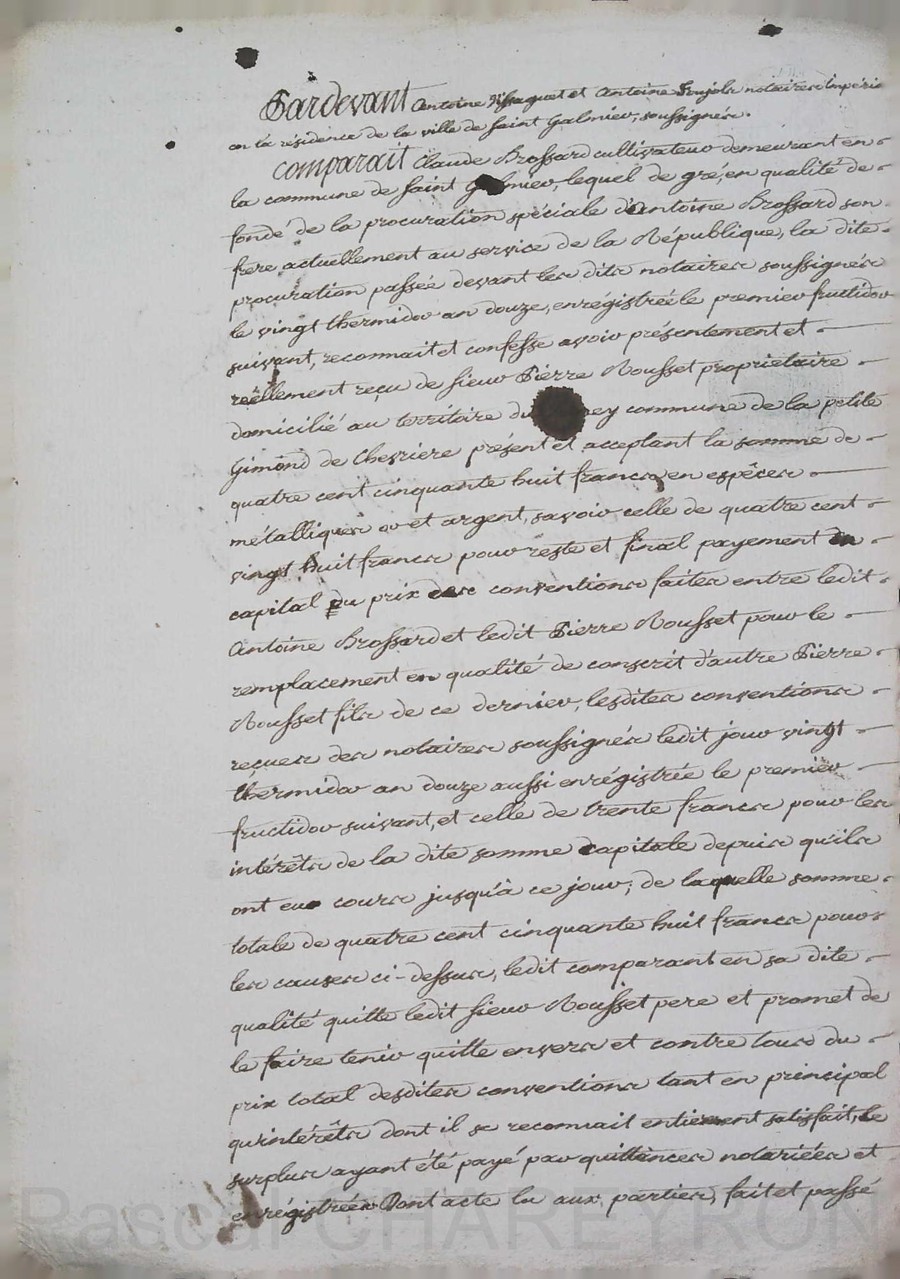 Pardevant Antoine et Antoine notaires impéria
en la résidence de la ville de Saint Galmier, soussignés.
Comparait Claude Brossard cultivateur demeurant en
la commune de Saint Galmier, lequel de gré, en qualité de
fondé de la procuration spéciale d'antoine Brossard son
frere actuellement au service de la République, la dite
procuration passée devant les dits notaires soussignés
le vingt thermidor an douze, enrégistrée le premier fructidor
suivant, reconnait et confesse avoir présentement et
réellement reçu de sieur Pierre Rousset propriétaire
domicilié au territoire du commune de la petite
Gimond de Chevriere présent et acceptant la somme de
quatre cent cinquante huit francs en espèces
métalliques or et argent, savoir celle de quatre cent
vingt huit francs pour reste et final payement en
capital du prix des conventions faites entre ledit
Antoine Brossard et ledit Pierre Rousset pour le
remplacement en qualité de conscrit d'autre Pierre
Rousset fils de ce dernier, lesdites conventions
reçues des notaires soussignés ledit jour vingt
thermidor an douze aussi enrégistrée le premier
fructidor suivant, et celle de trente francs pour les
intérêts de la dite somme capitale depuis qu'ils
ont eu cours jusqu'à ce jour; de laquelle somme
totale de quatre cent cinquante huit francs pour
les causes ci-dessus, ledit comparant en sa dite
qualité quitte ledit sieur Rousset pere et promet de
le faire tenir quitte envers et contre tous du
prix total desdites conventions tant en principal
qu'intérêts dont il se reconnait entierement satisfait, le
surplus ayant été payé par quittances notariées et
enrégistrées Dont acte lu aux parties, fait et passé
Pascal CHAREYRON